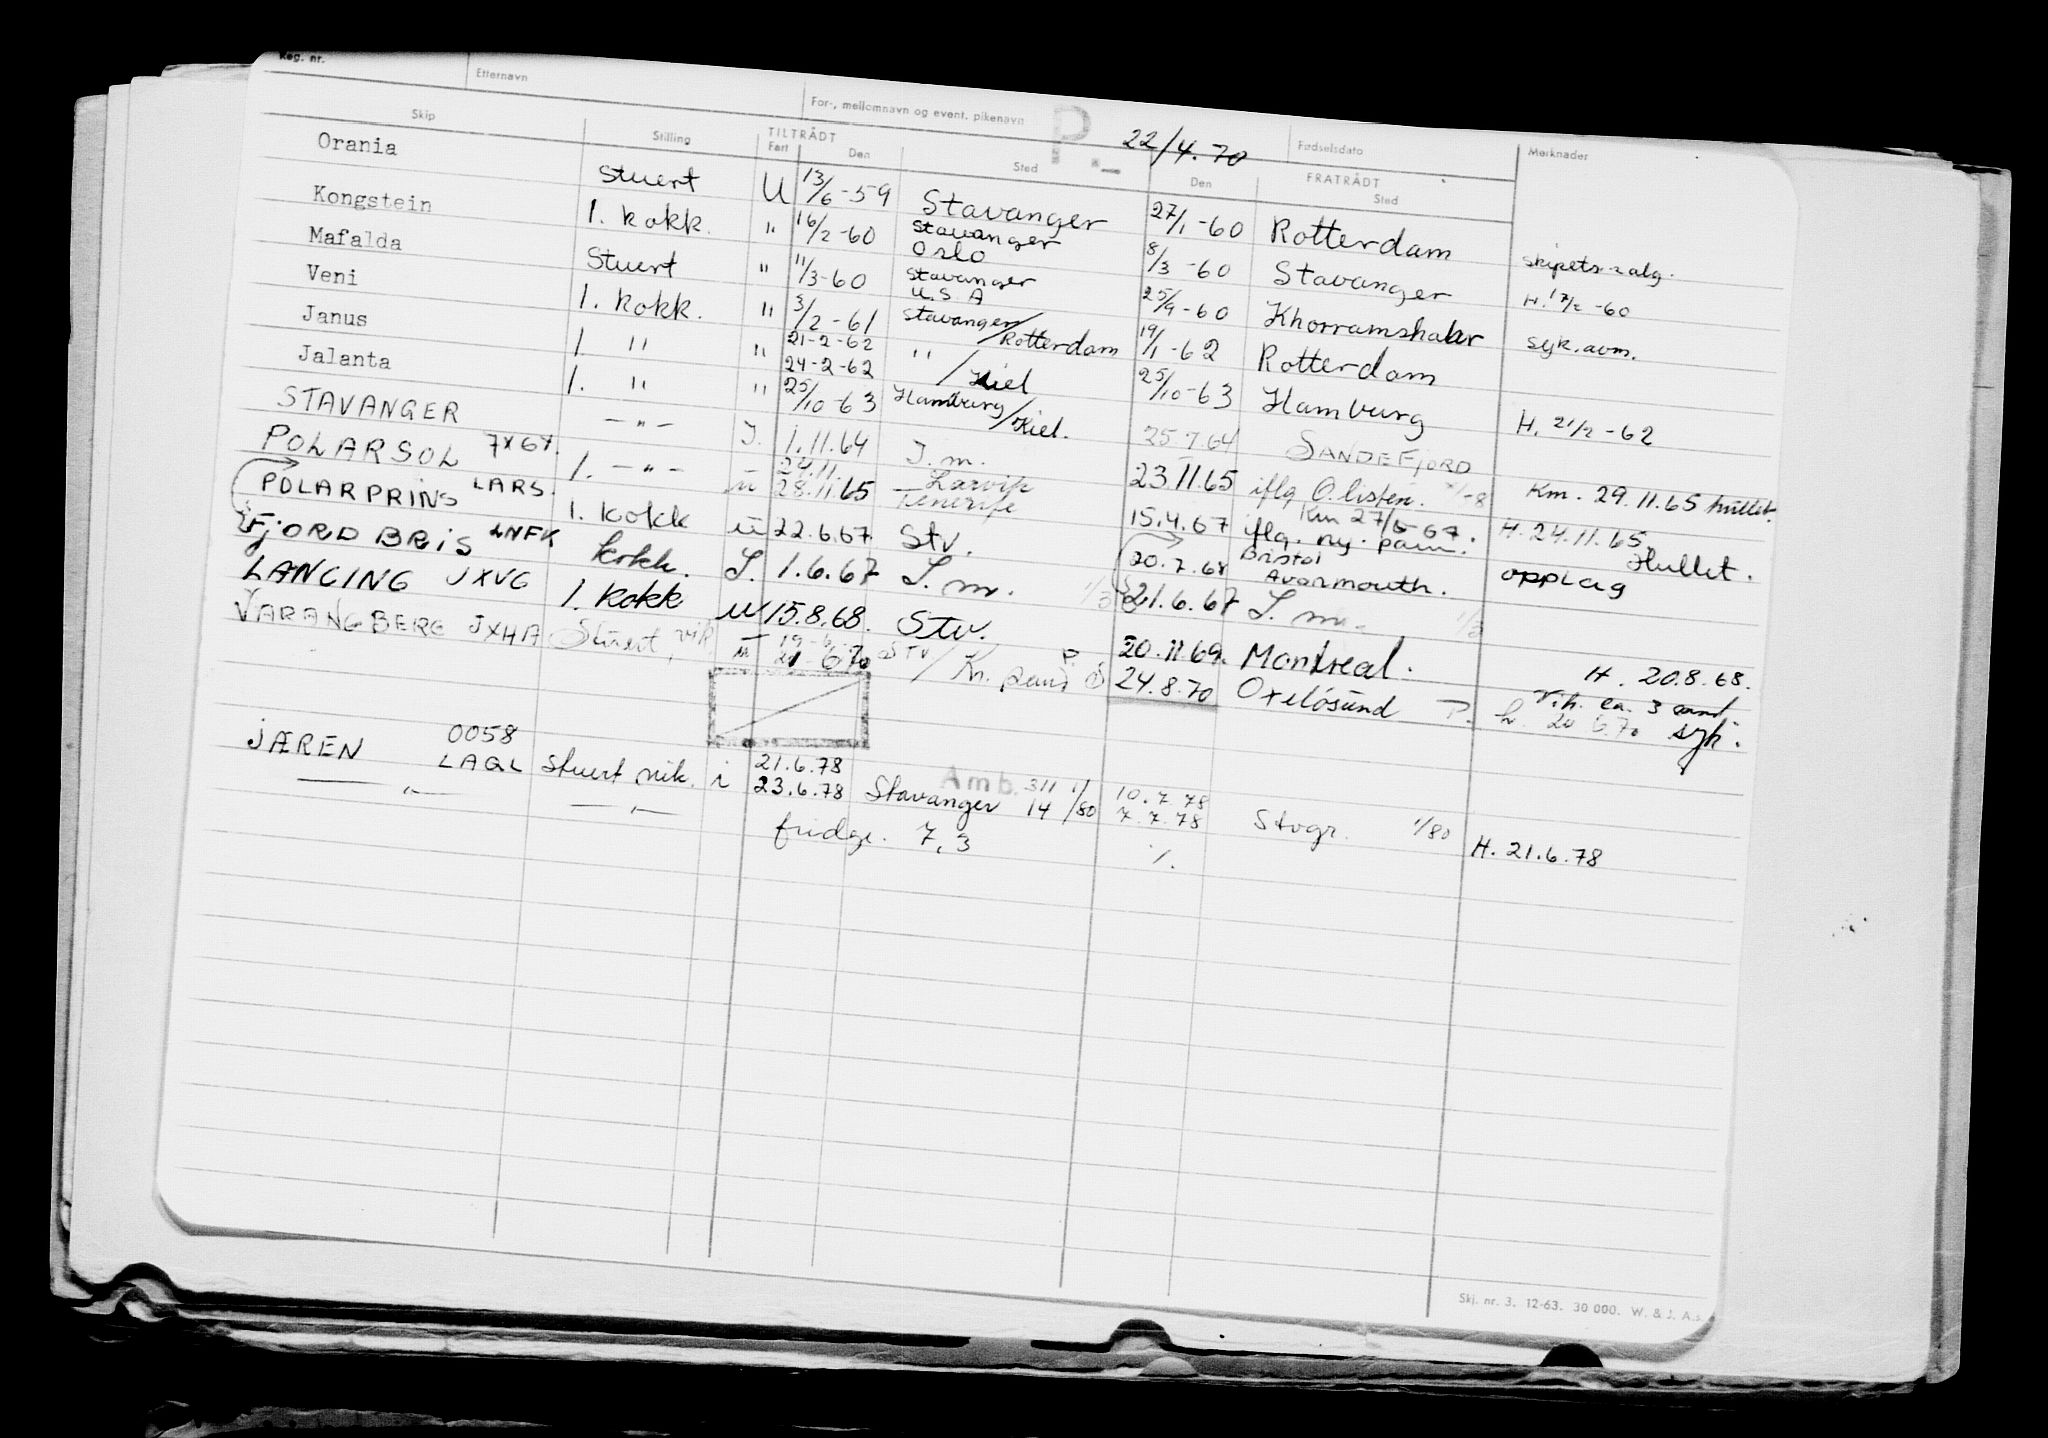 Reg. nr. Etternavn For-, mellomnavn og event. pikenavn P.- 22/4.70 Fødselsdato Merknader
Skip Stilling TILTRÅDT Fart Den Sted Den FRATRÅDT Sted
Orania Stuert U 13/6-59 Stavanger 27/1-60 Rotterdam skipets salg.
Kongstein 1. kokk. " 16/2-60 Stavanger Oslo 8/3-60 Stavanger H. 17/2-60
Mafalda Stuert " 11/3-60 Stavanger U.S.A 25/9-60 Khorramshahr syk.avm.
Veni 1. kokk. " 3/2-61 Stavanger/Rotterdam 19/1-62 Rotterdam
Janus 1. " " 21-2-62 24-2-62 " / Kiel 25/10-63 Hamburg H. 21/2-62
Jalanta 1. " " 25/10-63 Hamburg/Kiel. 25.7.64 SANDEFJORD
STAVANGER -"- I. 1.11.64 I. m. 23.11.65 iflg O.listen. Km. 29.11.65 hullet.
POLARSOL 7X6Y. 1. -"- u 24.11. 28.11.65 Larvik Tenerife 15.4.67 Km 27/6-67. iflg. ny. pam. H. 24.11.65. Hullet.
POLARPRINS LARS. 1. kokk u 22.6.67 Stv. 20.7.68 Bristol Avonmouth. opplag
FJORD BRIS LNFK kokk. I. 1.6.67 I. m. 1/3 21.6.67 I. m. 1/3
LANGING JXVG 1. kokk u 15.8.68. Stv. 20.11.69. Montreal. H. 20.8.68.
VARANGBERG JXHA Stuert, vik u 19-6 21-6.70 Stv / Kr. sand P. 24.8.70 Oxelösund P. Vik. ca. 3 mnd h. 20 6.70 syk.
JÆREN 0058 LAGL Stuert vik. i 21.6.78 23.6.78 Stavanger Amb. 311 14 1/80 10.7.78 7.7.78 Stvgr. 1/80 H. 21.6.78
-"- -"- fridge. 7,3 ./.
Skj. nr. 3. 12-63. 30 000. W. & J. A.s.